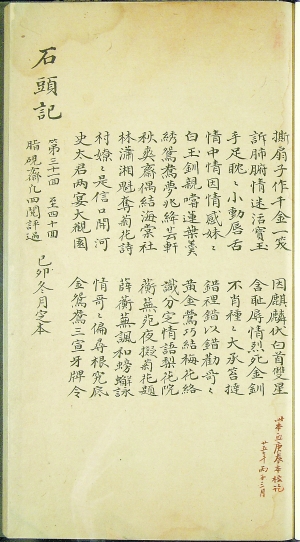 撕扇子作千金一笑 因麒麟伏白首雙星
訴肺腑情迷活寶玉 含恥辱情烈死金釧
手足眈〻小動唇舌 不肖種〻大承笞撻
情中情因情感妹〻 錯裡錯以錯勸哥〻
白玉釧親嚐蓮葉羹 黃金鶯巧結梅花絡
綉鴛鴦夢兆絳芸軒 識分定情語梨花院
秋爽齋偶結海棠社 蘅蕪苑夜擬菊花題
林瀟湘魁奪菊花詩 薛蘅蕪諷和螃蠏詠
村嫽〻是信口開河 情哥〻偏尋根究底
史太君兩宴大觀園 金鴛鴦三宣牙牌令
石頭記
第三十一回 至四十回
脂硯齋凡四閱評過 己卯冬月定本
此本照庚辰本校訖
廿五年丙子三月